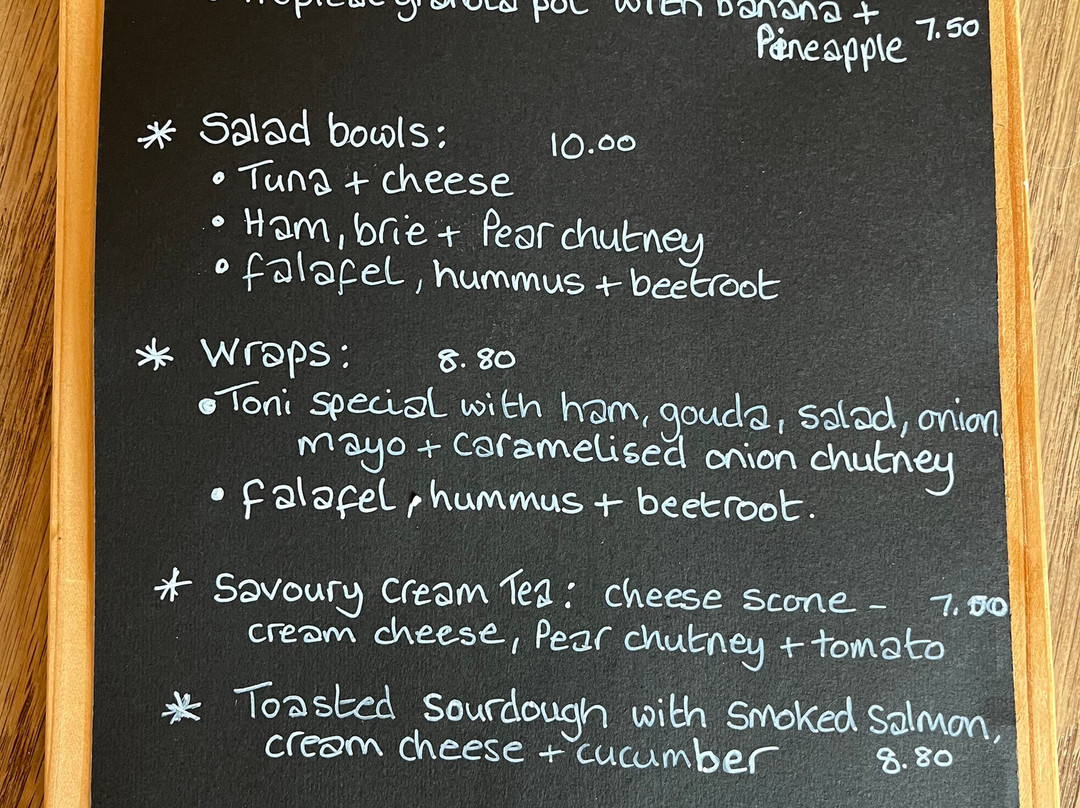 Tropical granola pot with banana +
Pineapple 7.50
* Salad bowls: 10.00
• Tuna + cheese
• Ham, brie + Pear chutney
• falafel, hummus + beetroot
* Wraps: 8.80
• Toni special with ham, gouda, salad, onion
mayo + caramelised onion chutney
• falafel, hummus + beetroot.
* Savoury Cream Tea: cheese scone - 7.00
cream cheese, Pear chutney + tomato
* Toasted sourdough with smoked salmon,
cream cheese + cucumber 8.80